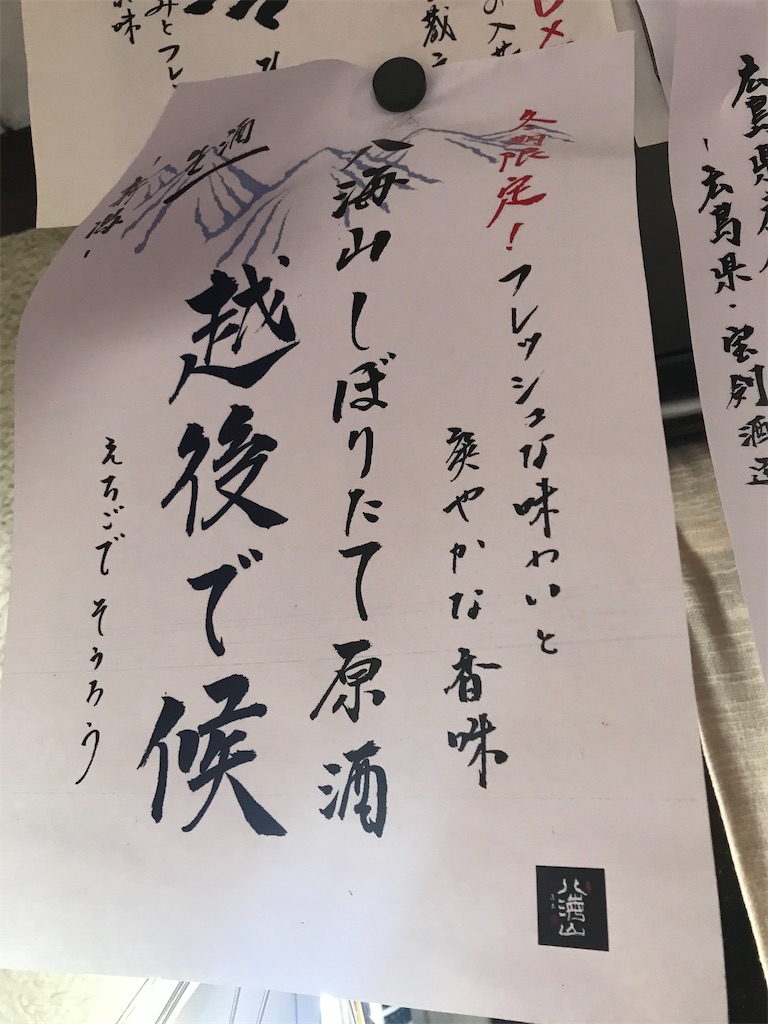 冬期限定!フレッシュな味わいと
爽やかな香味
八海山しぼりたて原酒
越後で候
えちごで そうろう
生酒
八海山
広島県・宝剣酒造